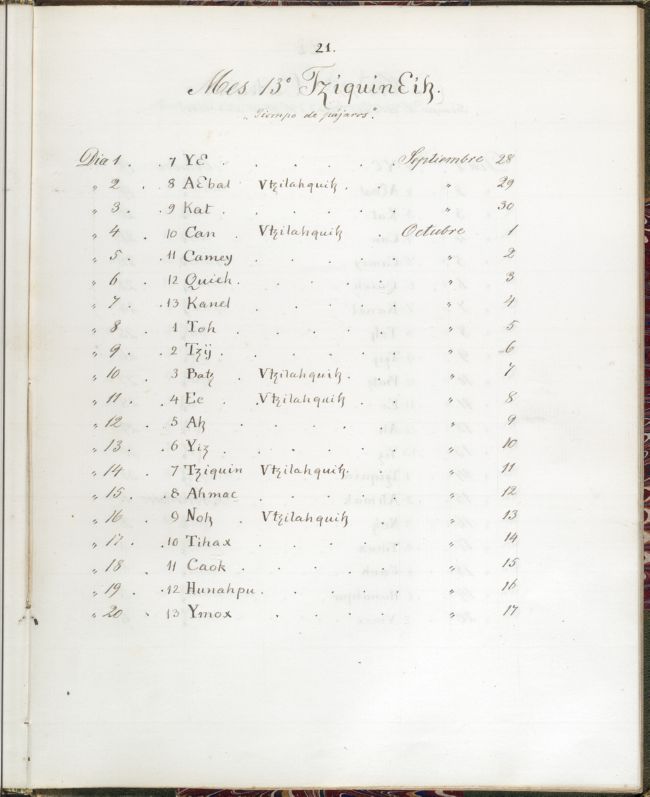 21.
Mes 13º TziquinEik.
"Tiempo de pájaros".
Dia 1 . . 7 YE . . . . . Septiembre 28
" 2 . 8 AEbal Vtzilahquih . . " 29
" 3 . . 9 Kat . . . . . " 30
" 4 . 10 Can . Vtzilahquih . Octubre . 1
" 5 . . 11 Camey . . . . " 2
" 6 . 12 Quieh . . . . . " 3
" 7 . . 13 Kanel . . . . " 4
" 8 . 1 Toh . . . . . " 5
" 9 . . 2 Tzÿ . . . . . " 6
" 10 . 3 Batz . Vtzilahquih . . " 7
" 11 . . 4 Ee . Vtzilahquih . . " 8
" 12 . 5 Ak . . . . . " 9
" 13 . . 6 Yiz . . . . . " 10
" 14 . 7 Tziquin Vtzilahquih . . " 11
" 15 . . 8 Ahmac . . . . " 12
" 16 . 9 Noh . Vtzilahquih . . " 13
" 17 . . 10 Tihax . . . . " 14
" 18 . 11 Caok . . . . . " 15
" 19 . . 12 Hunahpu . . . . " 16
" 20 . 13 Ymox . . . . " 17